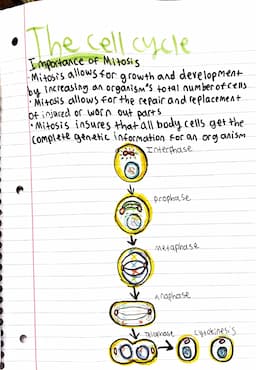 The cell cycle
Importance of Mitosis
· Mitosis allows for growth and development
by increasing an organism's total number of cells
· Mitosis allows for the repair and replacement
of injured or worn out parts
· Mitosis insures that all body cells get the
complete genetic information for an organism
Interphase
prophase
metaphase
Anaphase
Telophase cytokinesis